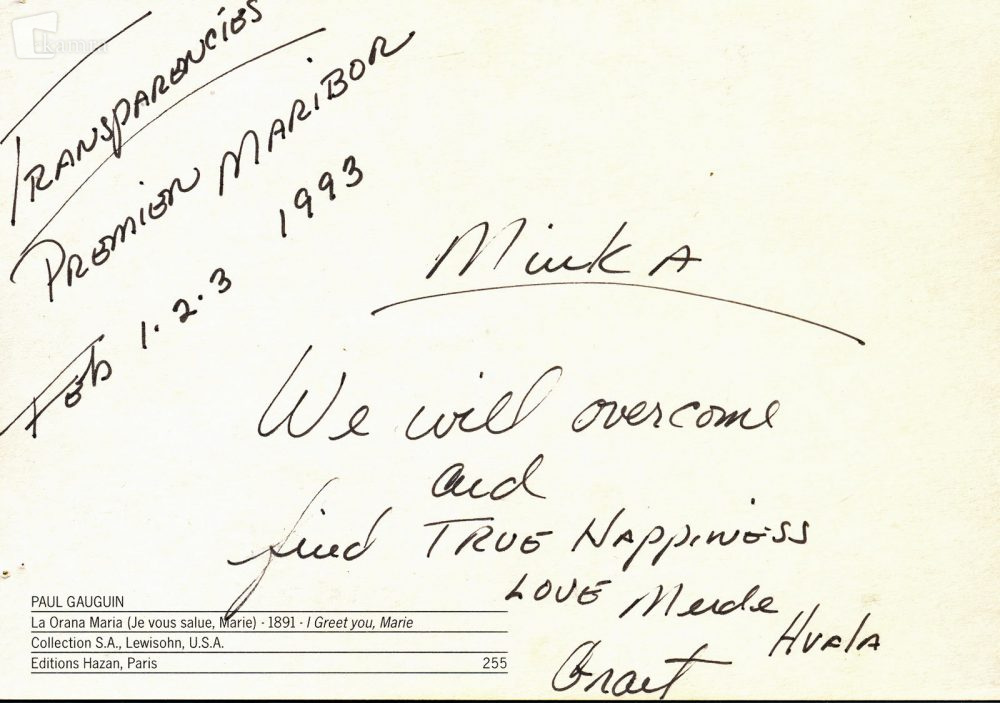 kamra
TRANSPARENCIES
PREMIER MARIBOR
1993
Feb 1.2.3
MinkA
We will overcome
and
find TRUE HAppiNESS
LOVE Merde
HVALA
Grant
PAUL GAUGUIN
La Orana Maria (Je vous salue, Marie) · 1891 · I Greet you, Marie
Collection S.A., Lewisohn, U.S.A.
Editions Hazan, Paris 255